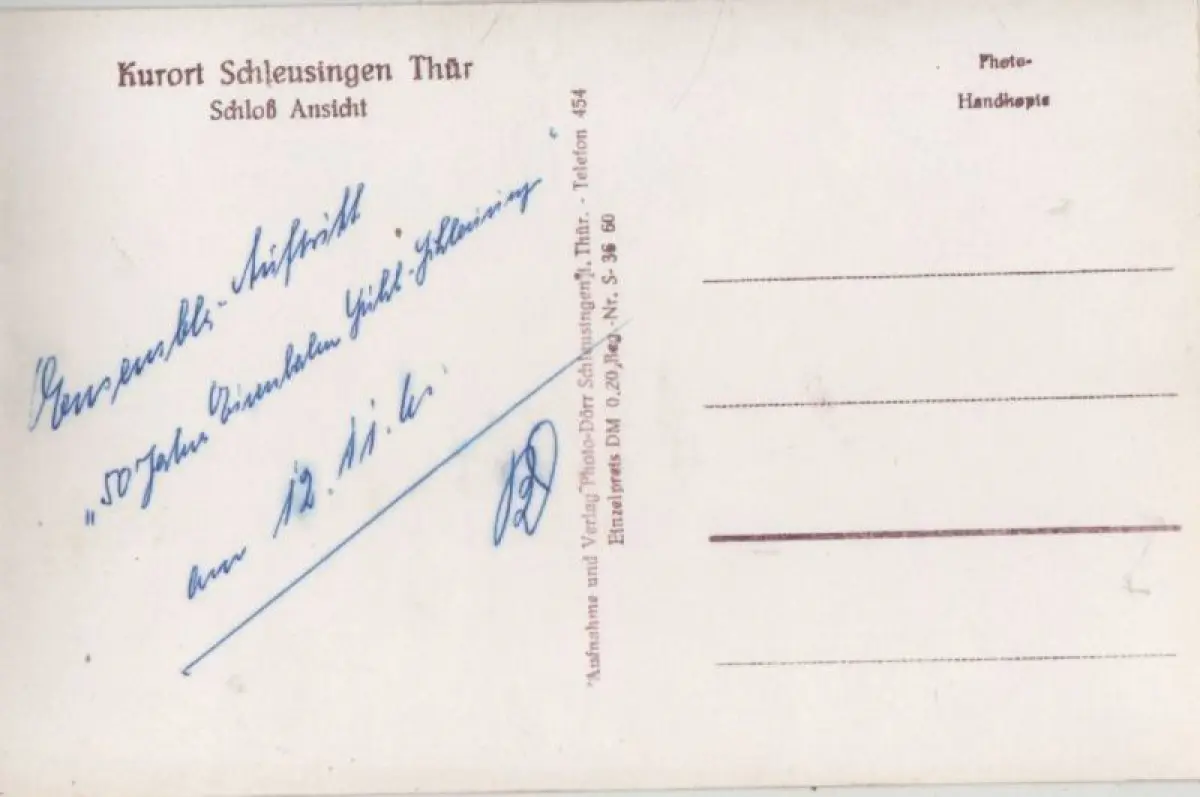 Kurort Schleusingen Thür
Schloß Ansicht
Ensemble-Auftritt
"50 Jahre Eisenbahn Suhl-Schleusing
am 12.11.
Aufnahme und Verlag Photo-Dörr Schleusingen i. Thür. - Telefon 454
Einzelpreis DM 0.20, Reg.-Nr. S- 36 60
Photo-
Handkopie